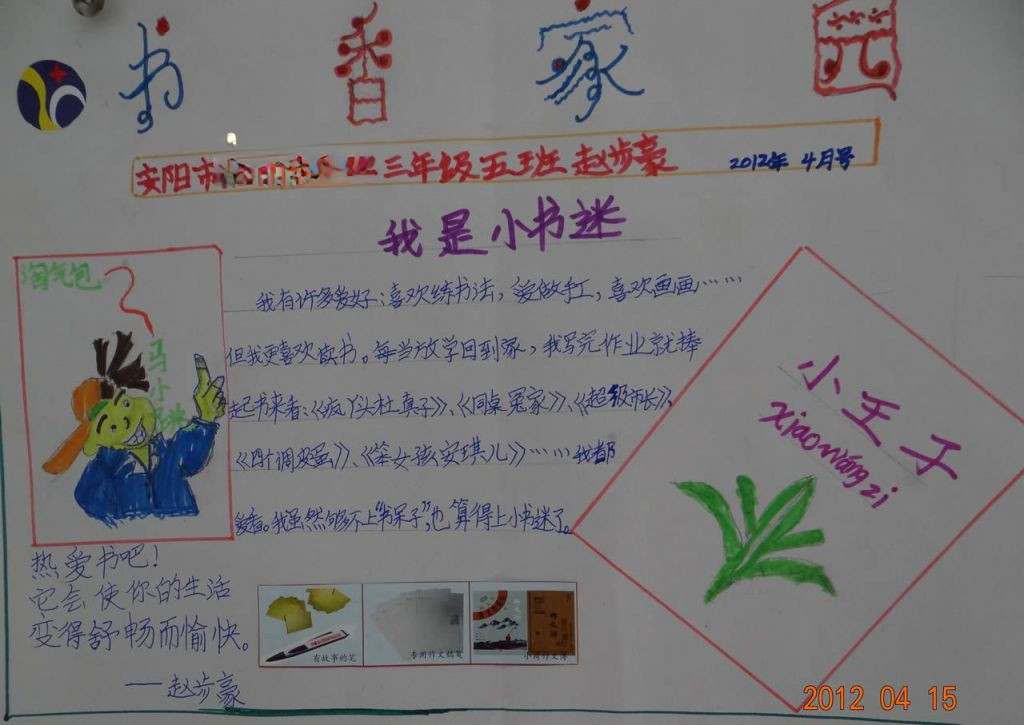 书香家园
安阳市 三年级五班 赵步豪 2012年 4月号
我是小书迷
淘气包
马小跳
我有许多爱好:喜欢练书法,爱做手工,喜欢画画……
但我更喜欢读书。每当放学回到家,我写完作业就捧
起书来看:《疯丫头杜真子》、《同桌冤家》、《超级市长》、
《四个调皮蛋》、《笨女孩安琪儿》……我都
爱看。我虽然够不上“书呆子”,也算得上小书迷了。
小王子
xiǎo wáng zi
热爱书吧!
它会使你的生活
变得舒畅而愉快。
——赵步豪
有故事的笔
专用作文稿笺
作文簿
2012 04 15